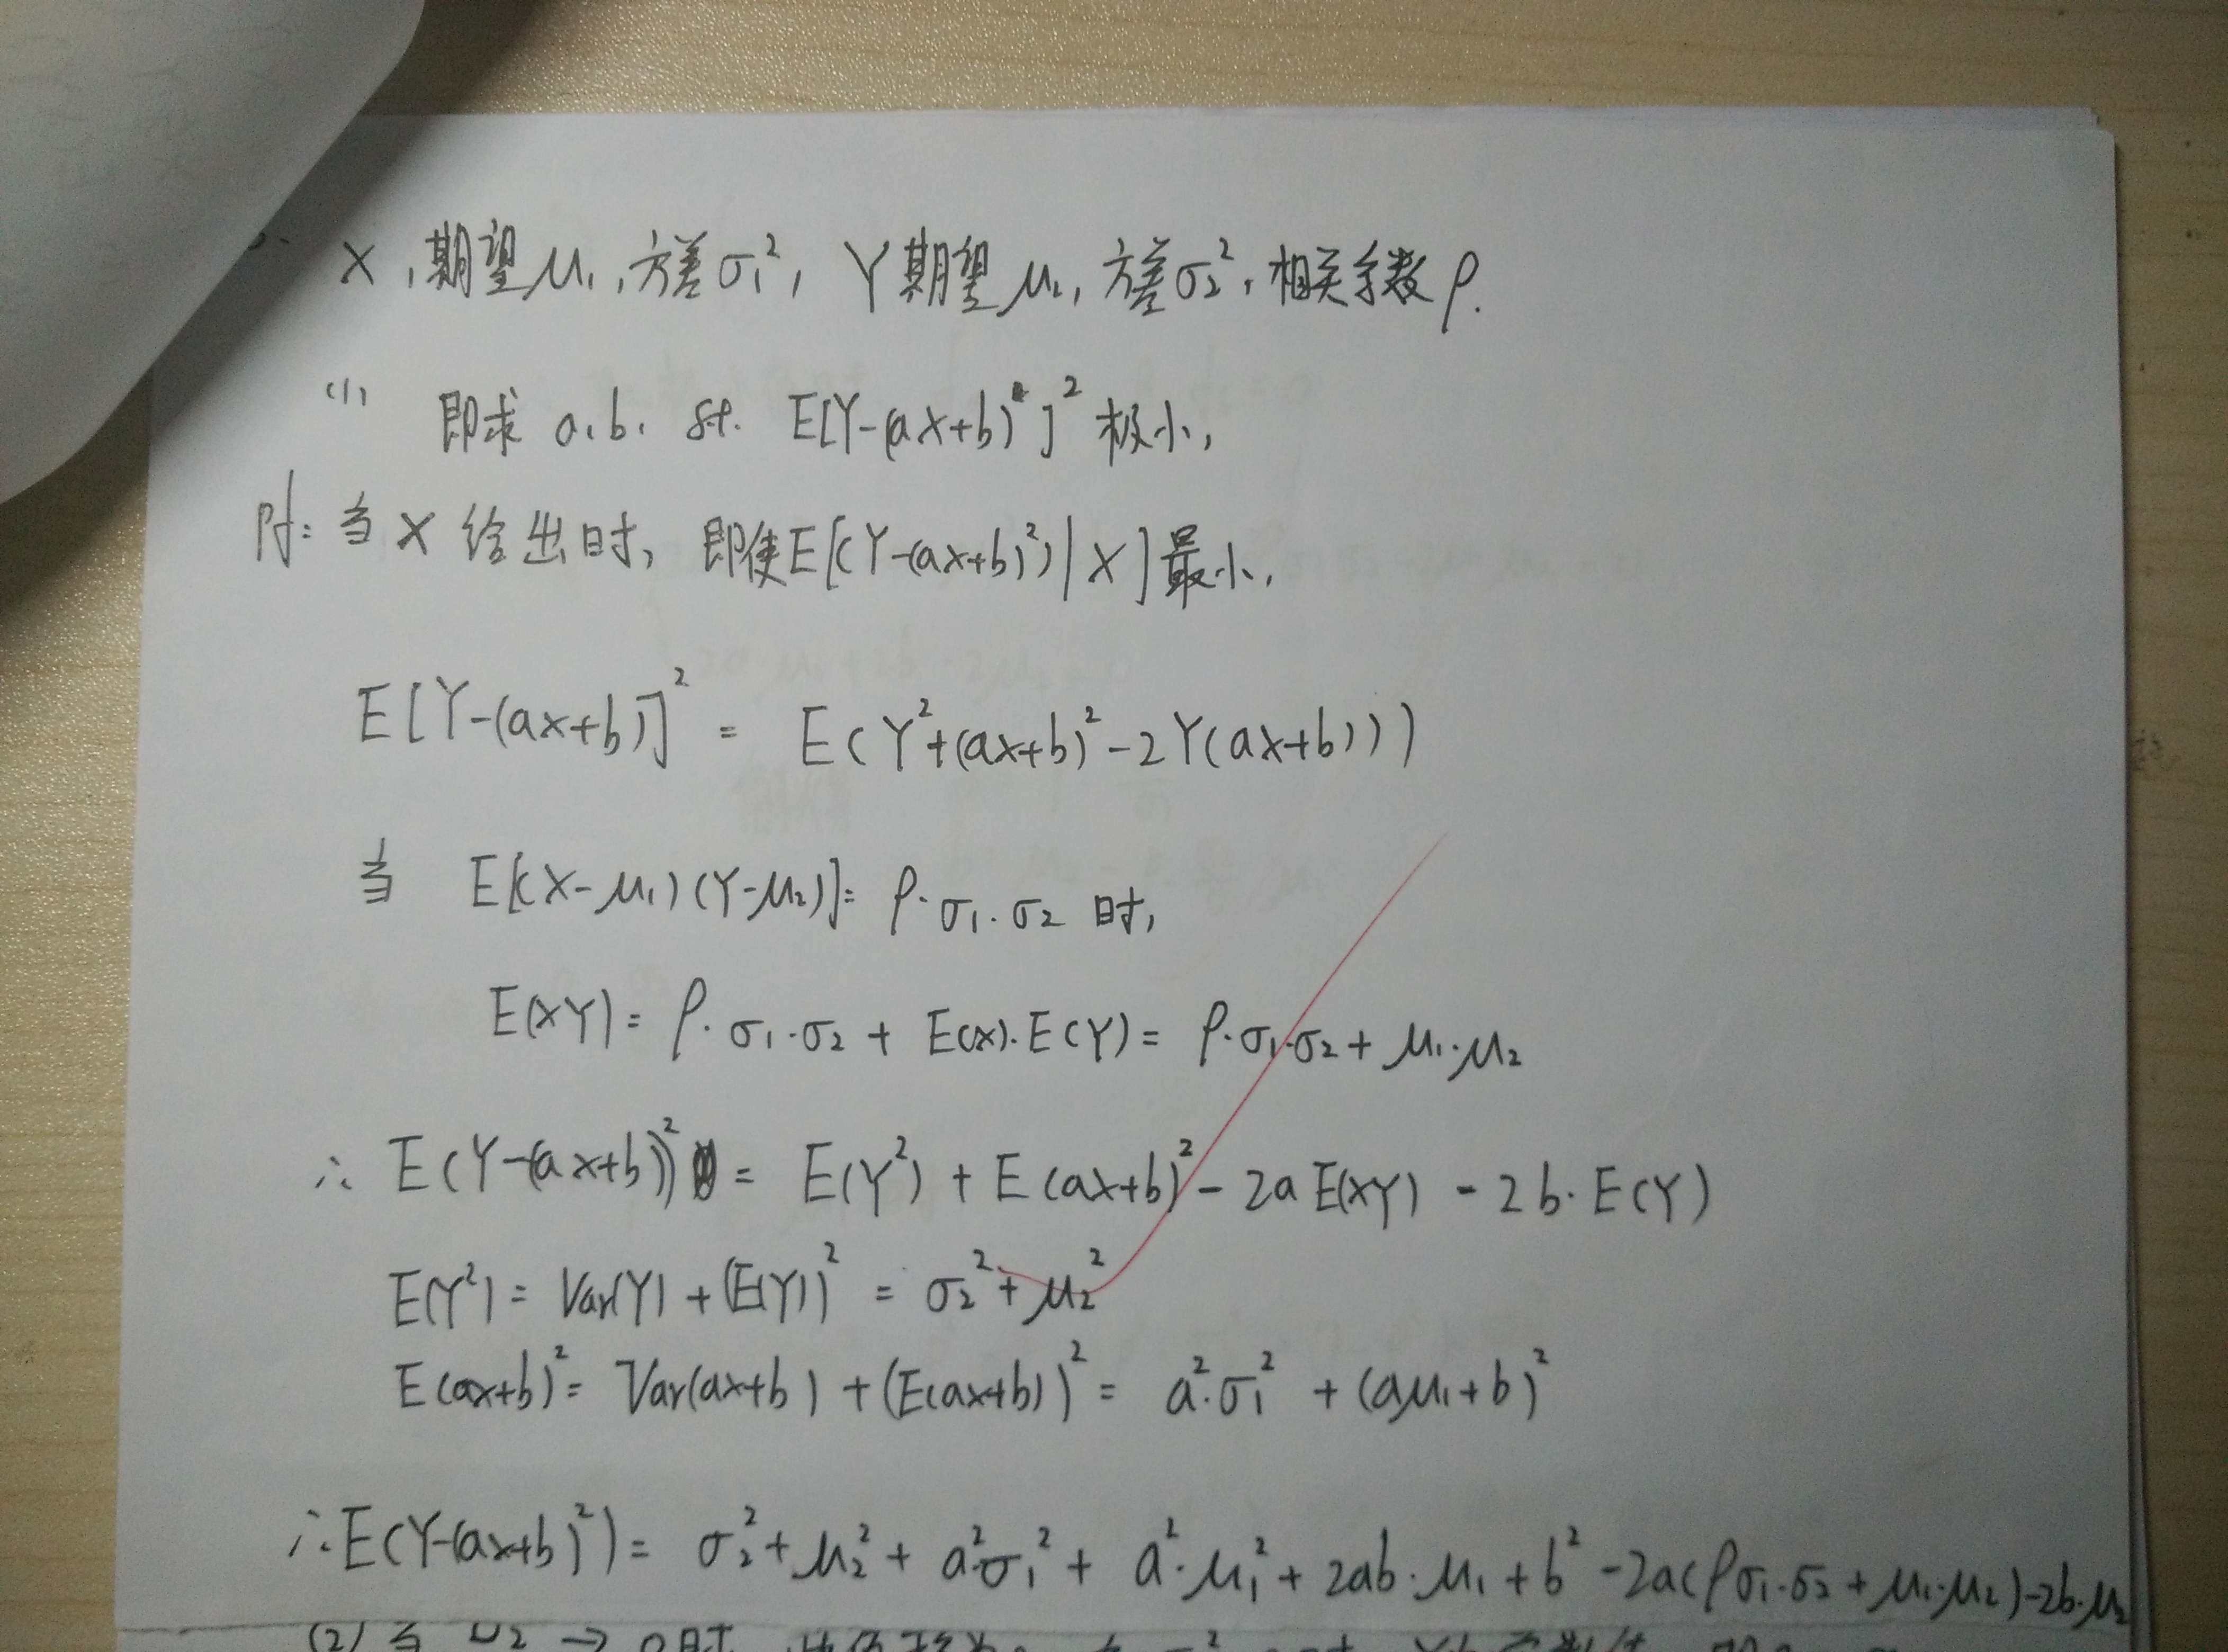 X,期望μ₁,方差σ₁², Y期望μ₂,方差σ₂²,相关系数ρ.
(1) 即求 a,b, st. E[Y-(aX+b)]² 极小,
附:当X给出时, 即使E[(Y-(ax+b)²)|X]最小,
E[Y-(ax+b)]² = E(Y²+(ax+b)²-2Y(ax+b)))
当 E[(X-μ₁)(Y-μ₂)]= ρ·σ₁·σ₂ 时,
E(XY)= ρ·σ₁·σ₂ + E(x)·E(Y)= ρ·σ₁·σ₂+μ₁·μ₂
∴ E(Y-(ax+b))² = E(Y²) + E(ax+b)² - 2a E(XY) - 2b·E(Y)
E(Y²)= Var(Y) + (E(Y))² = σ₂²+μ₂²
E(ax+b)²= Var(ax+b) + (E(ax+b))² = a²·σ₁² + (aμ₁+b)²
∴E(Y-(ax+b)²)= σ₂²+μ₂²+a²σ₁²+a²·μ₁²+2ab·μ₁+b²-2a(ρσ₁·σ₂+μ₁·μ₂)-2b·μ₂
(2)当